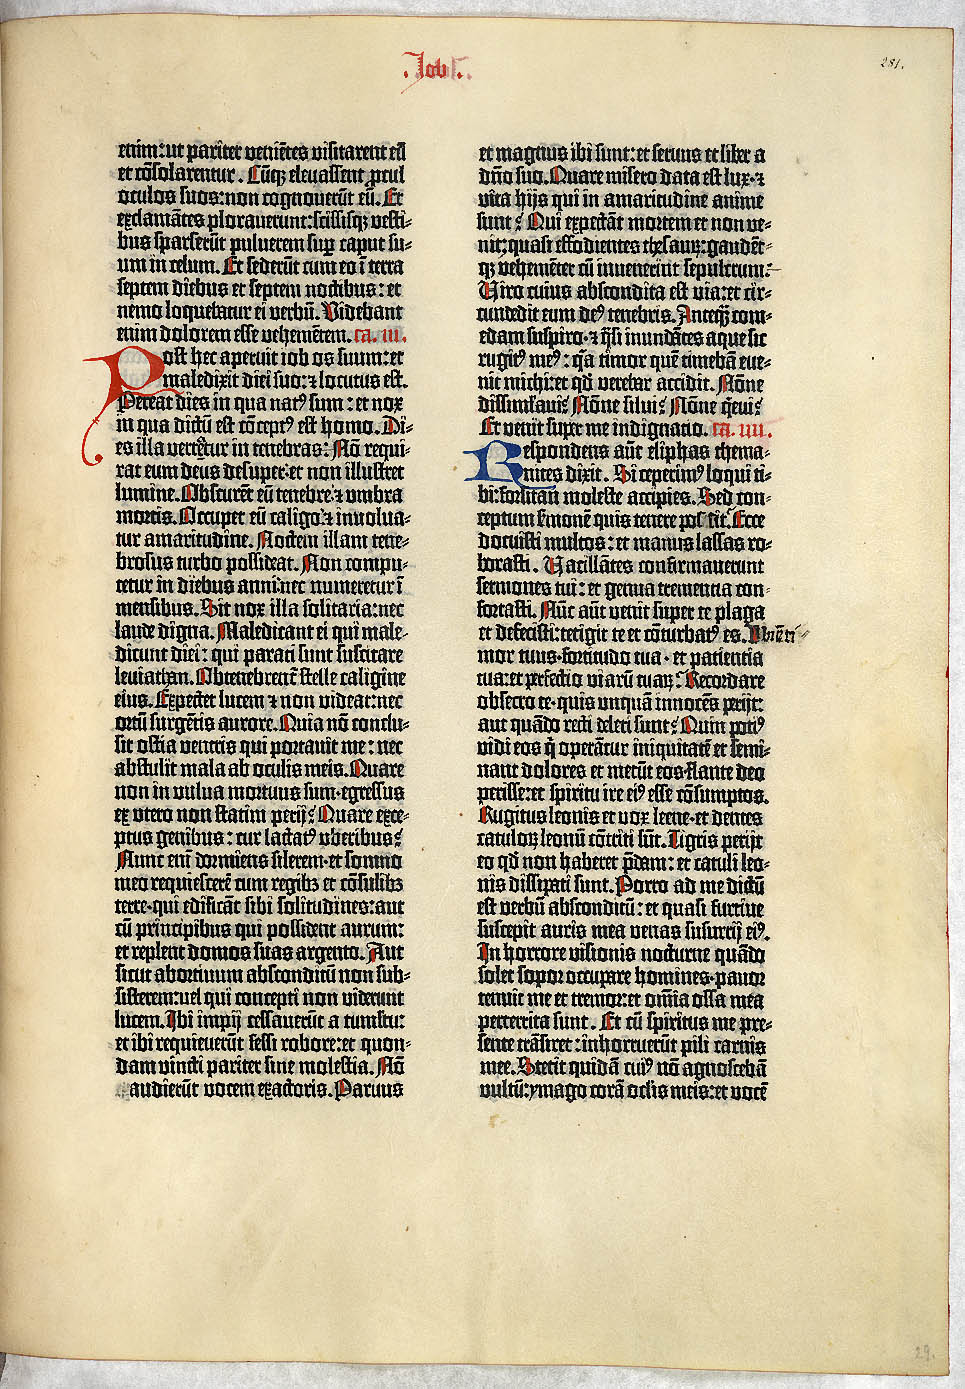 .Job.
281.
enim:ut pariter veniẽtes visitarent eũ
et cõsolarentur. Cũq; elevassent procul
oculos suos:non cognoverũt eũ. Et
exclamãtes ploraverunt:scissisq; vesti-
bus sparserũt pulverem super caput su-
um in celum. Et sederũt cum eo ĩ terra
septem diebus et septem noctibus: et
nemo loquebatur ei verbũ. Videbant
enim dolorem esse vehemẽtem. ca. iii.
Post hec aperuit iob os suum:et
maledixit diei suo:⁊ locutus est.
Pereat dies in qua natꝰ sum: et nox
in qua dictũ est cõceptꝰ est homo. Di-
es illa vertetur in tenebras: Nõ requi-
rat eum deus desuper:et non illustret
lumine. Obscurẽt eũ tenebre:⁊ umbra
mortis. Occupet eũ caligo:⁊ involva-
tur amaritudine. Noctem illam tene-
brosus turbo possideat. Non compu-
tetur in diebus anni:nec numeretur ĩ
mensibus. Sit nox illa solitaria:nec
laude digna. Maledicant ei qui male-
dicunt diei: qui parati sunt suscitare
leviathan. Obtenebrent᷑ stelle caligine
eius. Expectet lucem ⁊ non videat:nec
ortũ surgentis aurore. Quia nõ conclu-
sit ostia ventris qui portavit me: nec
abstulit mala ab oculis meis. Quare
non in vulva mortuus sum·egressus
ex utero non statim perij? Quare exce-
ptus genibus: cur lactatꝰ uberibus?
Nunc enĩ dormiens silerem·et somno
meo requiescerẽ cum regibꝫ et cõsulibꝫ
terre·qui edificãt sibi solitudines:aut
cũ principibus qui possident aurum:
et replent domos suas argento. Aut
sicut abortivum absconditũ non sub-
sisterem:vel qui concepti non viderunt
lucem. Ibi impij cessaverũt a tumltu:
et ibi requieverũt fessi robore:et quon-
dam vincti pariter sine molestia. Nõ
audierũt vocem exactoris. Parvus
et magnus ibi sunt:et servus et liber a
dño suo. Quare misero data est lux·⁊
vita hijs qui in amaritudine anime
sunt? Qui expectãt mortem et non ve-
nit:quasi effodientes thesauꝝ:gaudẽt-
q; vehemẽter cũ invenerint sepulcrum:
Viro cuius abscondita est via:et cir-
cundedit eum deꝰ tenebris. Anteq̃ com-
edam suspiro·⁊ q̃si inundãtes aque sic
rugitꝰ meꝰ: q̃a timor quẽ timebã eve-
nit michi:et qd̃ verebar accidit. Nõne
dissimlavi? Nõne silui? Nõne q̃evi?
Et venit super me indignatio. ca. iiii.
Respondens aũt eliphas thema-
nites dixit. Si ceperimꝰ loqui ti-
bi:forsitan moleste accipies. Sed con-
ceptum s̃monẽ quis tenere pos̃ sit? Ecce
docuisti multos: et manus lassas ro-
borasti. Vacillãtes confirmaverunt
sermones tui: et genua trementia con-
fortasti. Nũc aũt venit super te plaga
et defecisti:tetigit te et cõturbatꝰ es. Ubi ẽ ti-
mor tuus·fortitudo tua· et patientia
tua:et perfectio viarũ tuaꝝ? Recordare
obsecro te·quis unquã innocẽs perijt:
aut quãdo recti deleti sunt? Quin potiꝰ
vidi eos q̃ operãtur iniquitatẽ et semi-
nant dolores et metũt eos·flante deo
perisse:et spiritu ire eiꝰ esse cõsumptos.
Rugitus leonis et vox leene·et dentes
catuloꝝ leonũ cõtriti sũt. Tigris perijt
eo qd̃ non haberet p̃dam: et catuli leo-
nis dissipati sunt. Porro ad me dictũ
est verbũ absconditũ: et quasi furtive
suscepit auris mea venas susurrij eiꝰ.
In horrore visionis nocturne quãdo
solet sopor occupare homines·pavor
tenuit me et tremor:et om̃ia ossa mea
perterrita sunt. Et cũ spiritus me pre-
sente trãsiret: inhorruerũt pili carnis
mee. Stetit quidã cuiꝰ nõ agnoscebã
vultũ:ymago corã oclis meis:et vocẽ
29.